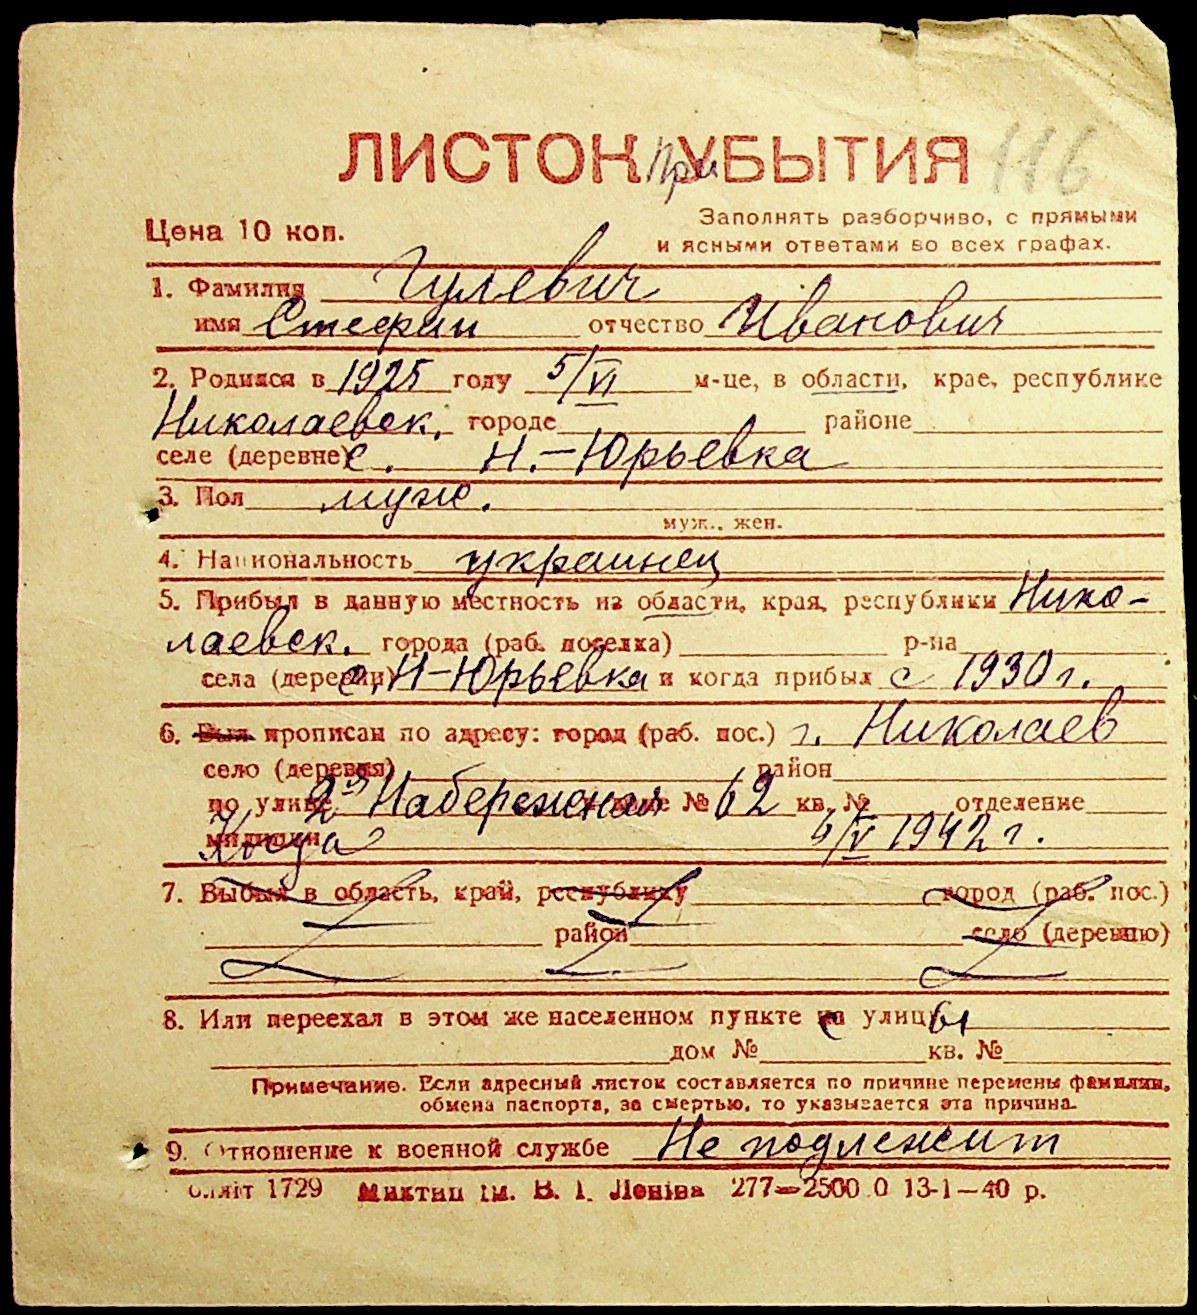 ЛИСТОК При УБЫТИЯ 116
Цена 10 коп.
Заполнять разборчиво, с прямыми
и ясными ответами во всех графах.
1. Фамилия Гулевич
имя Стефан отчество Иванович
2. Родился в 1925 году 5/VI м-це, в области, крае, республике
Николаевск. городе районе
селе (деревне) с. Н.-Юрьевка
3. Пол муж.
муж., жен.
4. Национальность украинец
5. Прибыл в данную местность из области, края, республики Нико-
лаевск. города (раб. поселка) р-на
села (деревни) с. Н-Юрьевка и когда прибыл с 1930 г.
6. Был прописан по адресу: город (раб. пос.) г. Николаев
село (деревня) район
по улице 2ая Набережная № 62 кв. № отделение
милиции Когда 4/V 1942 г.
7. Выбыл в область, край, республику город (раб. пос.)
район село (деревню)
8. Или переехал в этом же населенном пункте с улицы
дом № кв. №
Примечание. Если адресный листок составляется по причине перемены фамилии,
обмена паспорта, за смертью, то указывается эта причина.
9. Отношение к военной службе Не подлежит
1729 В. І. Леніва 277—2500 0 13-1—40 р.